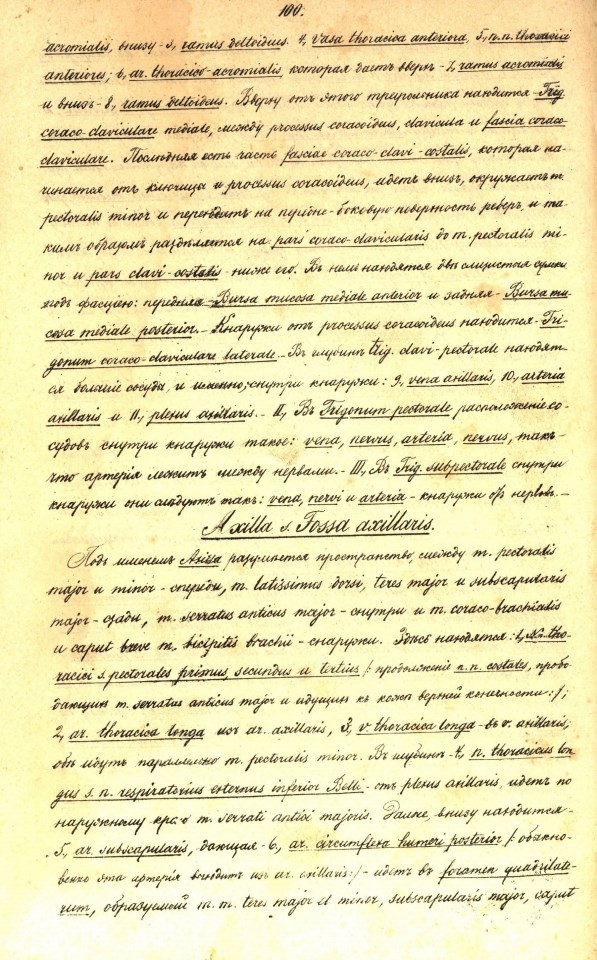 100.
acromialis, внизу - 3, ramus deltoideus. 4, Vasa thoracica anteriora, 5, n.n. thoracici
anteriores; 6, ar. thoracico-acromialis, которая даетъ вверхъ - 7, ramus acromialis
и внизъ - 8, ramus deltoideus. Вверху отъ этого треугольника находится - Trig.
coraco-claviculare mediale, между processus coracoideus, clavicula и fascia coraco-
claviculare. Послѣдняя есть часть fasciae coraco-clavi-costalis, которая на-
чинается отъ ключицы и processus coracoideus, идетъ внизъ, окружаетъ m.
pectoralis minor и переходитъ на передне-боковую поверхность реберъ, и та-
кимъ образомъ раздѣляется на pars coraco-clavicularis до m. pectoralis mi-
nor и pars clavi-costalis - ниже его. Въ немъ находятся двѣ слизистыя сумки
подъ фасціею: передняя - Bursa mucosa mediale anterior и задняя - Bursa mu-
cosa mediale posterior. - Кнаружи отъ processus coracoideus находится - Tri-
gonum coraco-claviculare laterale. - Въ глубинѣ trig. clavi-pectorale находят-
ся большіе сосуды, и именно, снутри кнаружи: 9, vena axillaris, 10, arteria
axillaris и 11, plexus axillaris. - II, Въ Trigonum pectorale расположеніе со-
судовъ снутри кнаружи такое: vena, nervus, arteria, nervus, такъ-
что артерія лежитъ между нервами. - III, Въ Trig. subpectorale снутри
кнаружи они слѣдуютъ такъ: vena, nervi и arteria - кнаружи отъ нервовъ. -
Axilla s. Fossa axillaris.
Подъ именемъ Axilla разумѣется пространство, между m. pectoralis
major и minor - спереди, m. latissimus dorsi, teres major и subscapularis
major - сзади, m. serratus anticus major - снутри и m. coraco-brachialis
и caput breve m. bicipitis brachii - снаружи. Здѣсь находятся: 1, Nn. tho-
racici s. pectorales primus, secundus и tertius /: продолженіе n.n. costales, пробо-
дающихъ m. serratus anticus major и идущихъ къ кожѣ верхней конечности :/;
2, ar. thoracica longa изъ ar. axillaris, 3, v. thoracica longa - въ v. axillaris;
обѣ идутъ параллельно m. pectoralis minor. Въ глубинѣ - 4, n. thoracicus lon-
gus s. n. respiratorius externus inferior Belli - отъ plexus axillaris, идетъ по
наружному краю m. serrati antici majoris. Далѣе, внизу находится -
5, ar. subscapularis, дающая - 6, ar. circumflexa humeri posterior /: обыкно-
венно эта артерія выходитъ изъ ar. axillaris :/ - идетъ въ foramen quadrilate-
rum, образуемой m.m. teres major et minor, subscapularis major, caput